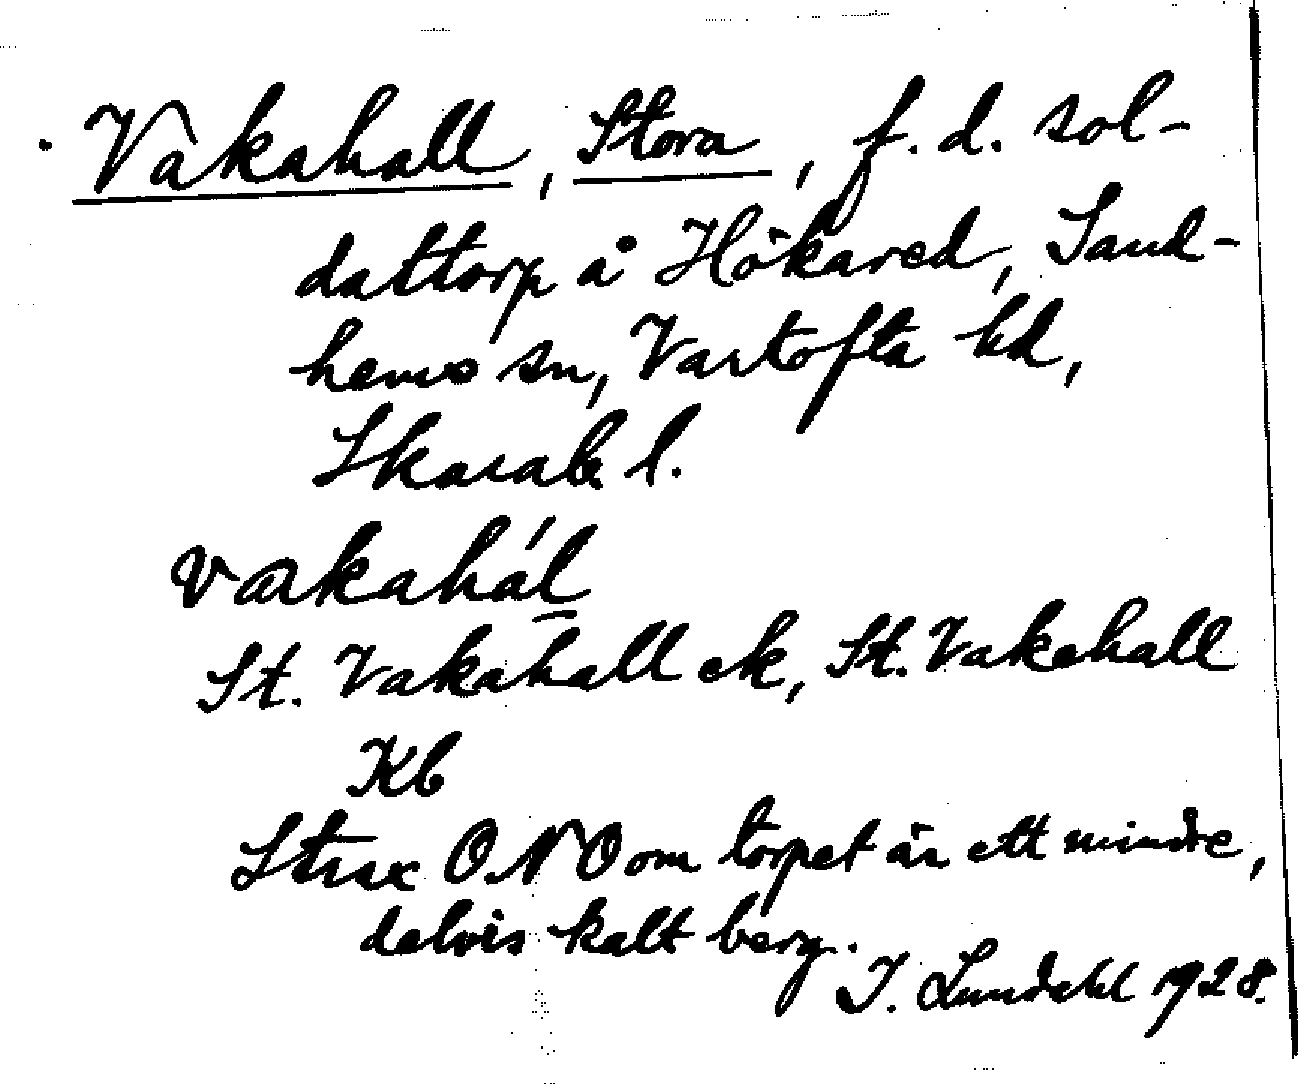 Vakahall, Stora, f. d. sol-
dattorp å Hökared, Sand-
hems sn, Vartofta hd,
Skarab l.
St. Vakahall ek, St. Vakehall
Kb
Strax O.N.O om torpet är ett mindre,
delvis kalt berg.
I. Lundahl 1928.